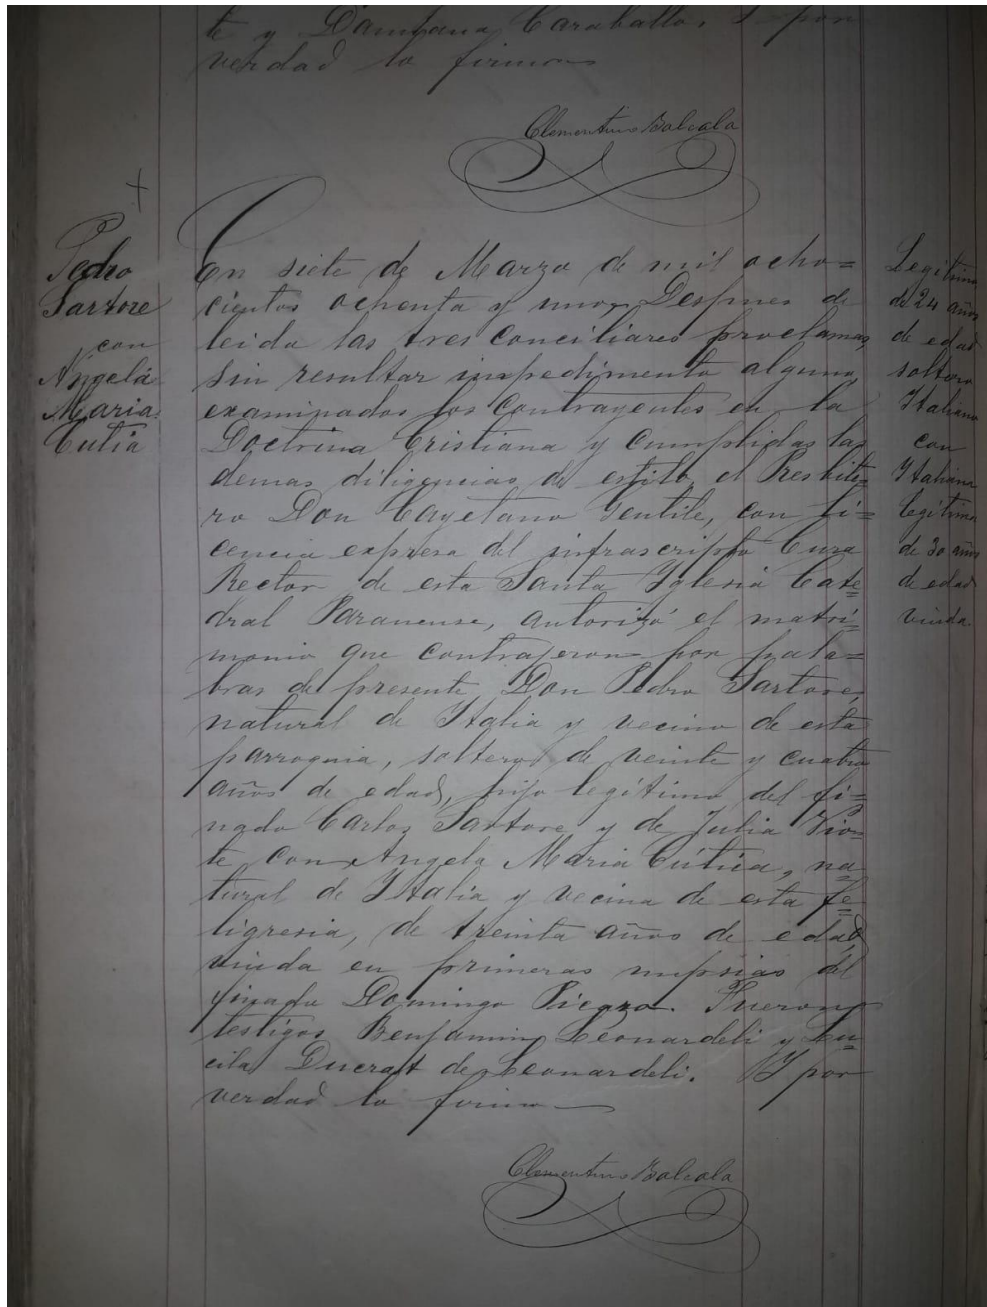 te y Damiana Caraballo. Y por
verdad lo firmo
Clementino Balcala
Pedro
Sartore
con
Angela
Maria
Cutia
En siete de Marzo de mil ocho=
cientos ochenta y uno, Despues de
leida las tres conciliares proclamas,
sin resultar impedimento alguno,
examinados los contrayentes en la
Doctrina Cristiana y cumplidas las
demas diligencias de estilo, el Presbite=
ro Don Cayetano Gentile, con li=
cencia expresa del infrascripto Cura
Rector de esta Santa Yglesia Cate=
dral Paranense, autorizó el matri=
monio que contrajeron por pala=
bras de presente, Don Pedro Sartore,
natural de Ytalia y vecino de esta
parroquia, soltero, de veinte y cuatro
años de edad, hijo legítimo del fi=
nado Carlos Sartore y de Julia Vio=
te, con Angela Maria Cútica, na=
tural de Ytalia y vecina de esta fe=
ligresia, de treinta años de edad,
viuda en primeras nupsias del
finado Domingo Piegza. Fueron
testigos Benjamin Leonardeli y Lu=
cila Ducrat de Leonardeli. Y por
verdad lo firmo
Clementino Balcala
Legítimo
de 24 años
de edad
soltero
Italiano
con
Ytaliana
legítima
de 30 años
de edad
viuda